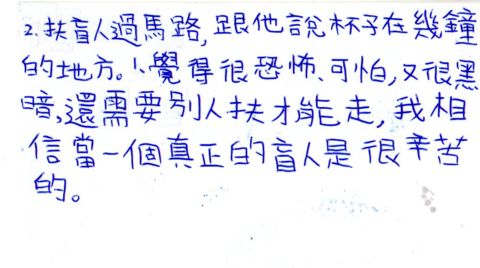 2.扶盲人過馬路,跟他說杯子在幾鐘
的地方。1.覺得很恐怖、可怕,又很黑
暗,還需要別人扶才能走,我相
信當一個真正的盲人是很辛苦
的。